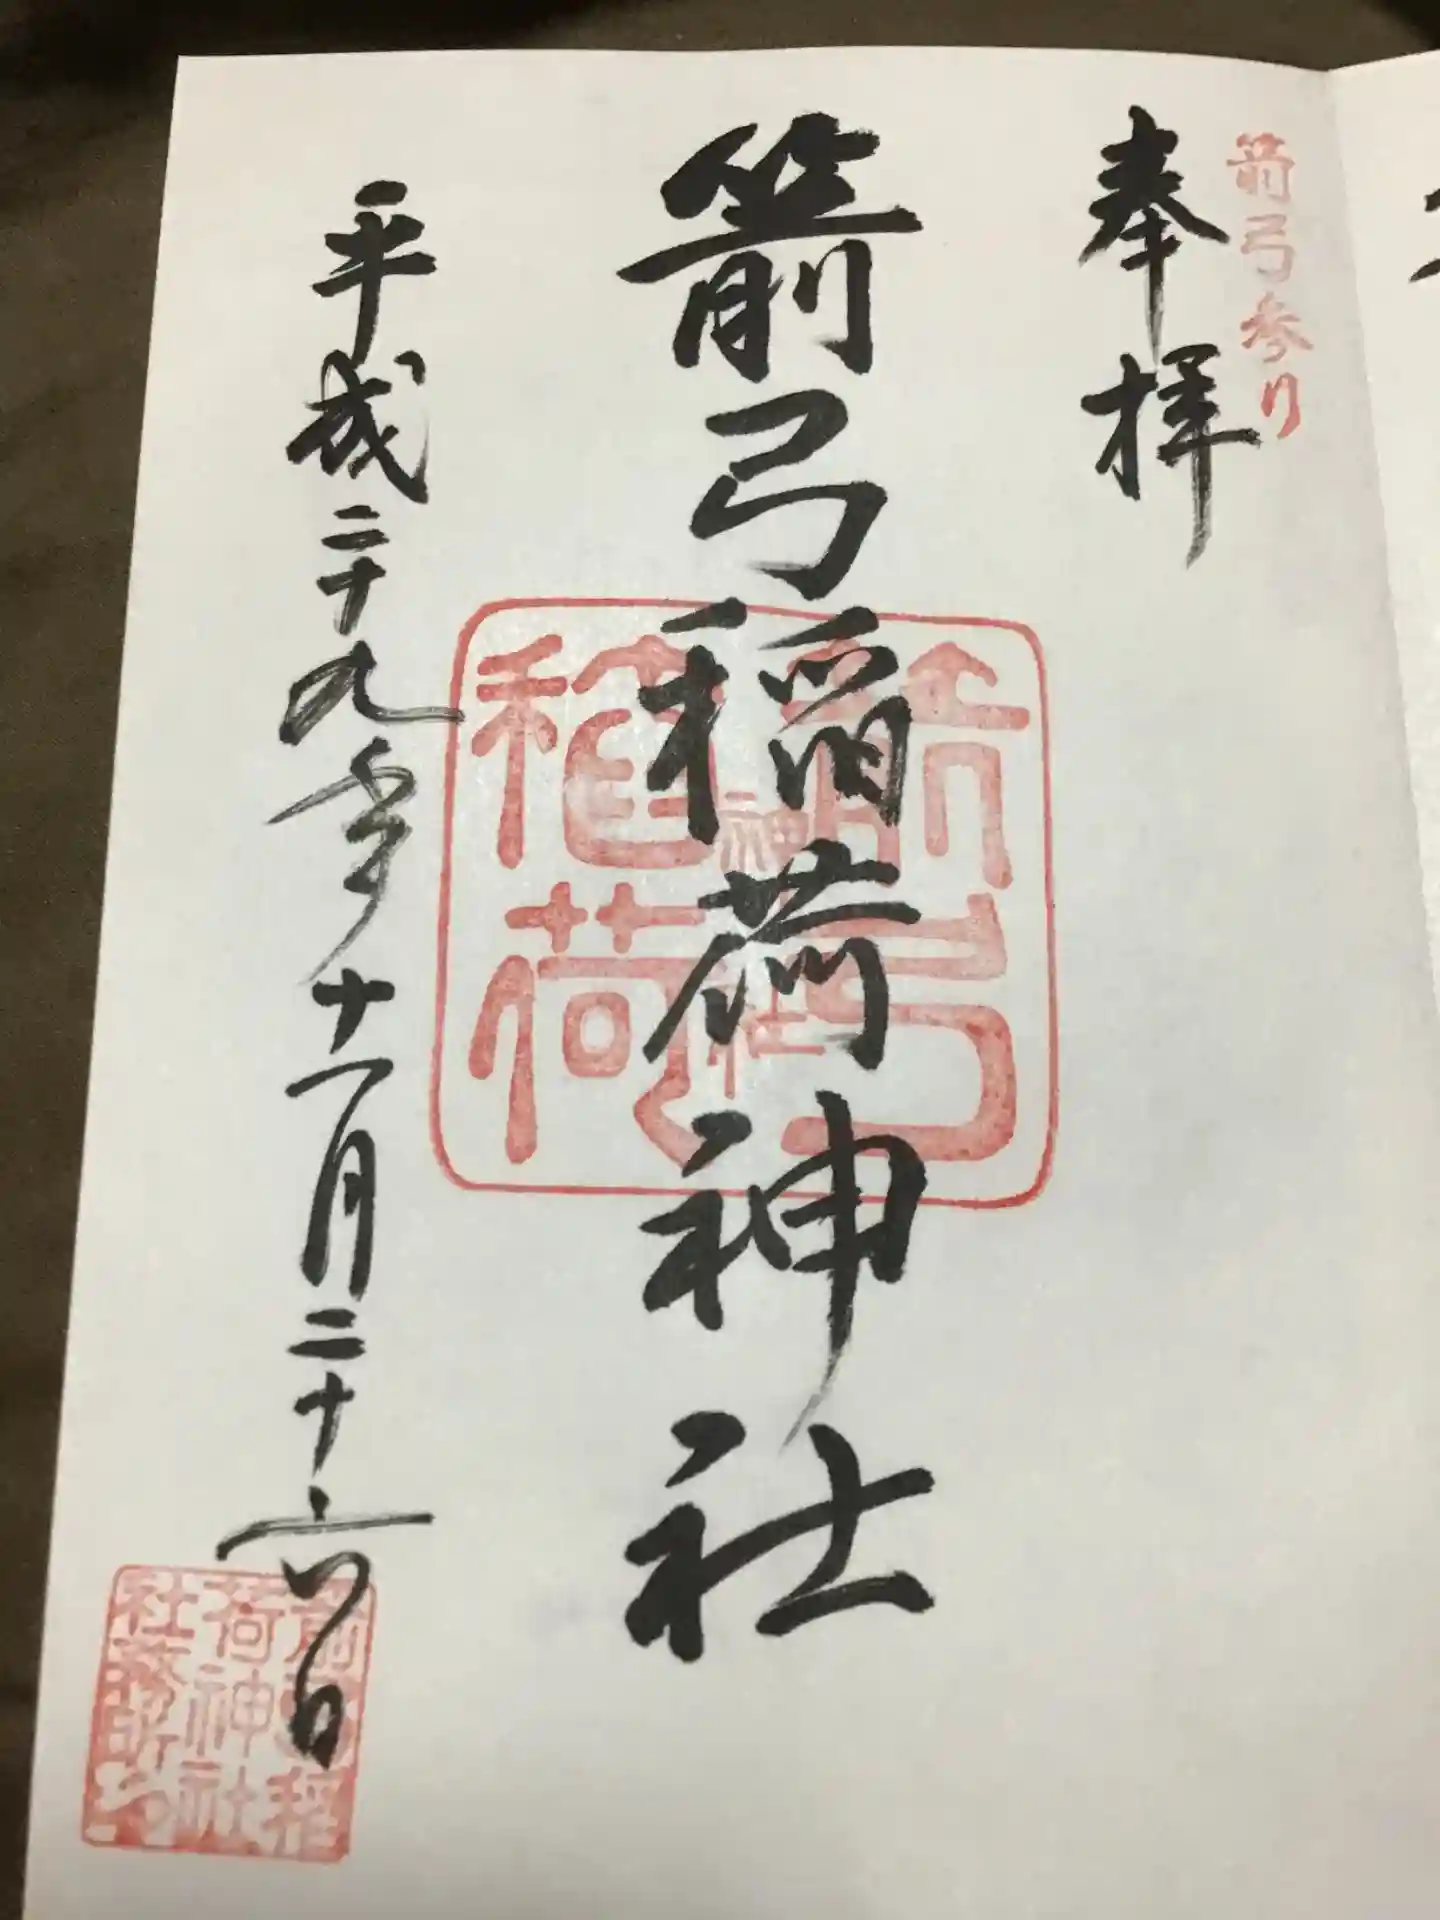 箭弓参り
奉拝
箭弓稲荷神社
箭弓
稲荷
神社
平成二十九年十一月二十六日
箭弓稲
荷神社
社務所